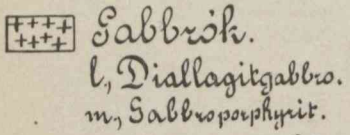 Gabbrók.
l, Diallagitgabbro.
m, Gabbroporphyrit.